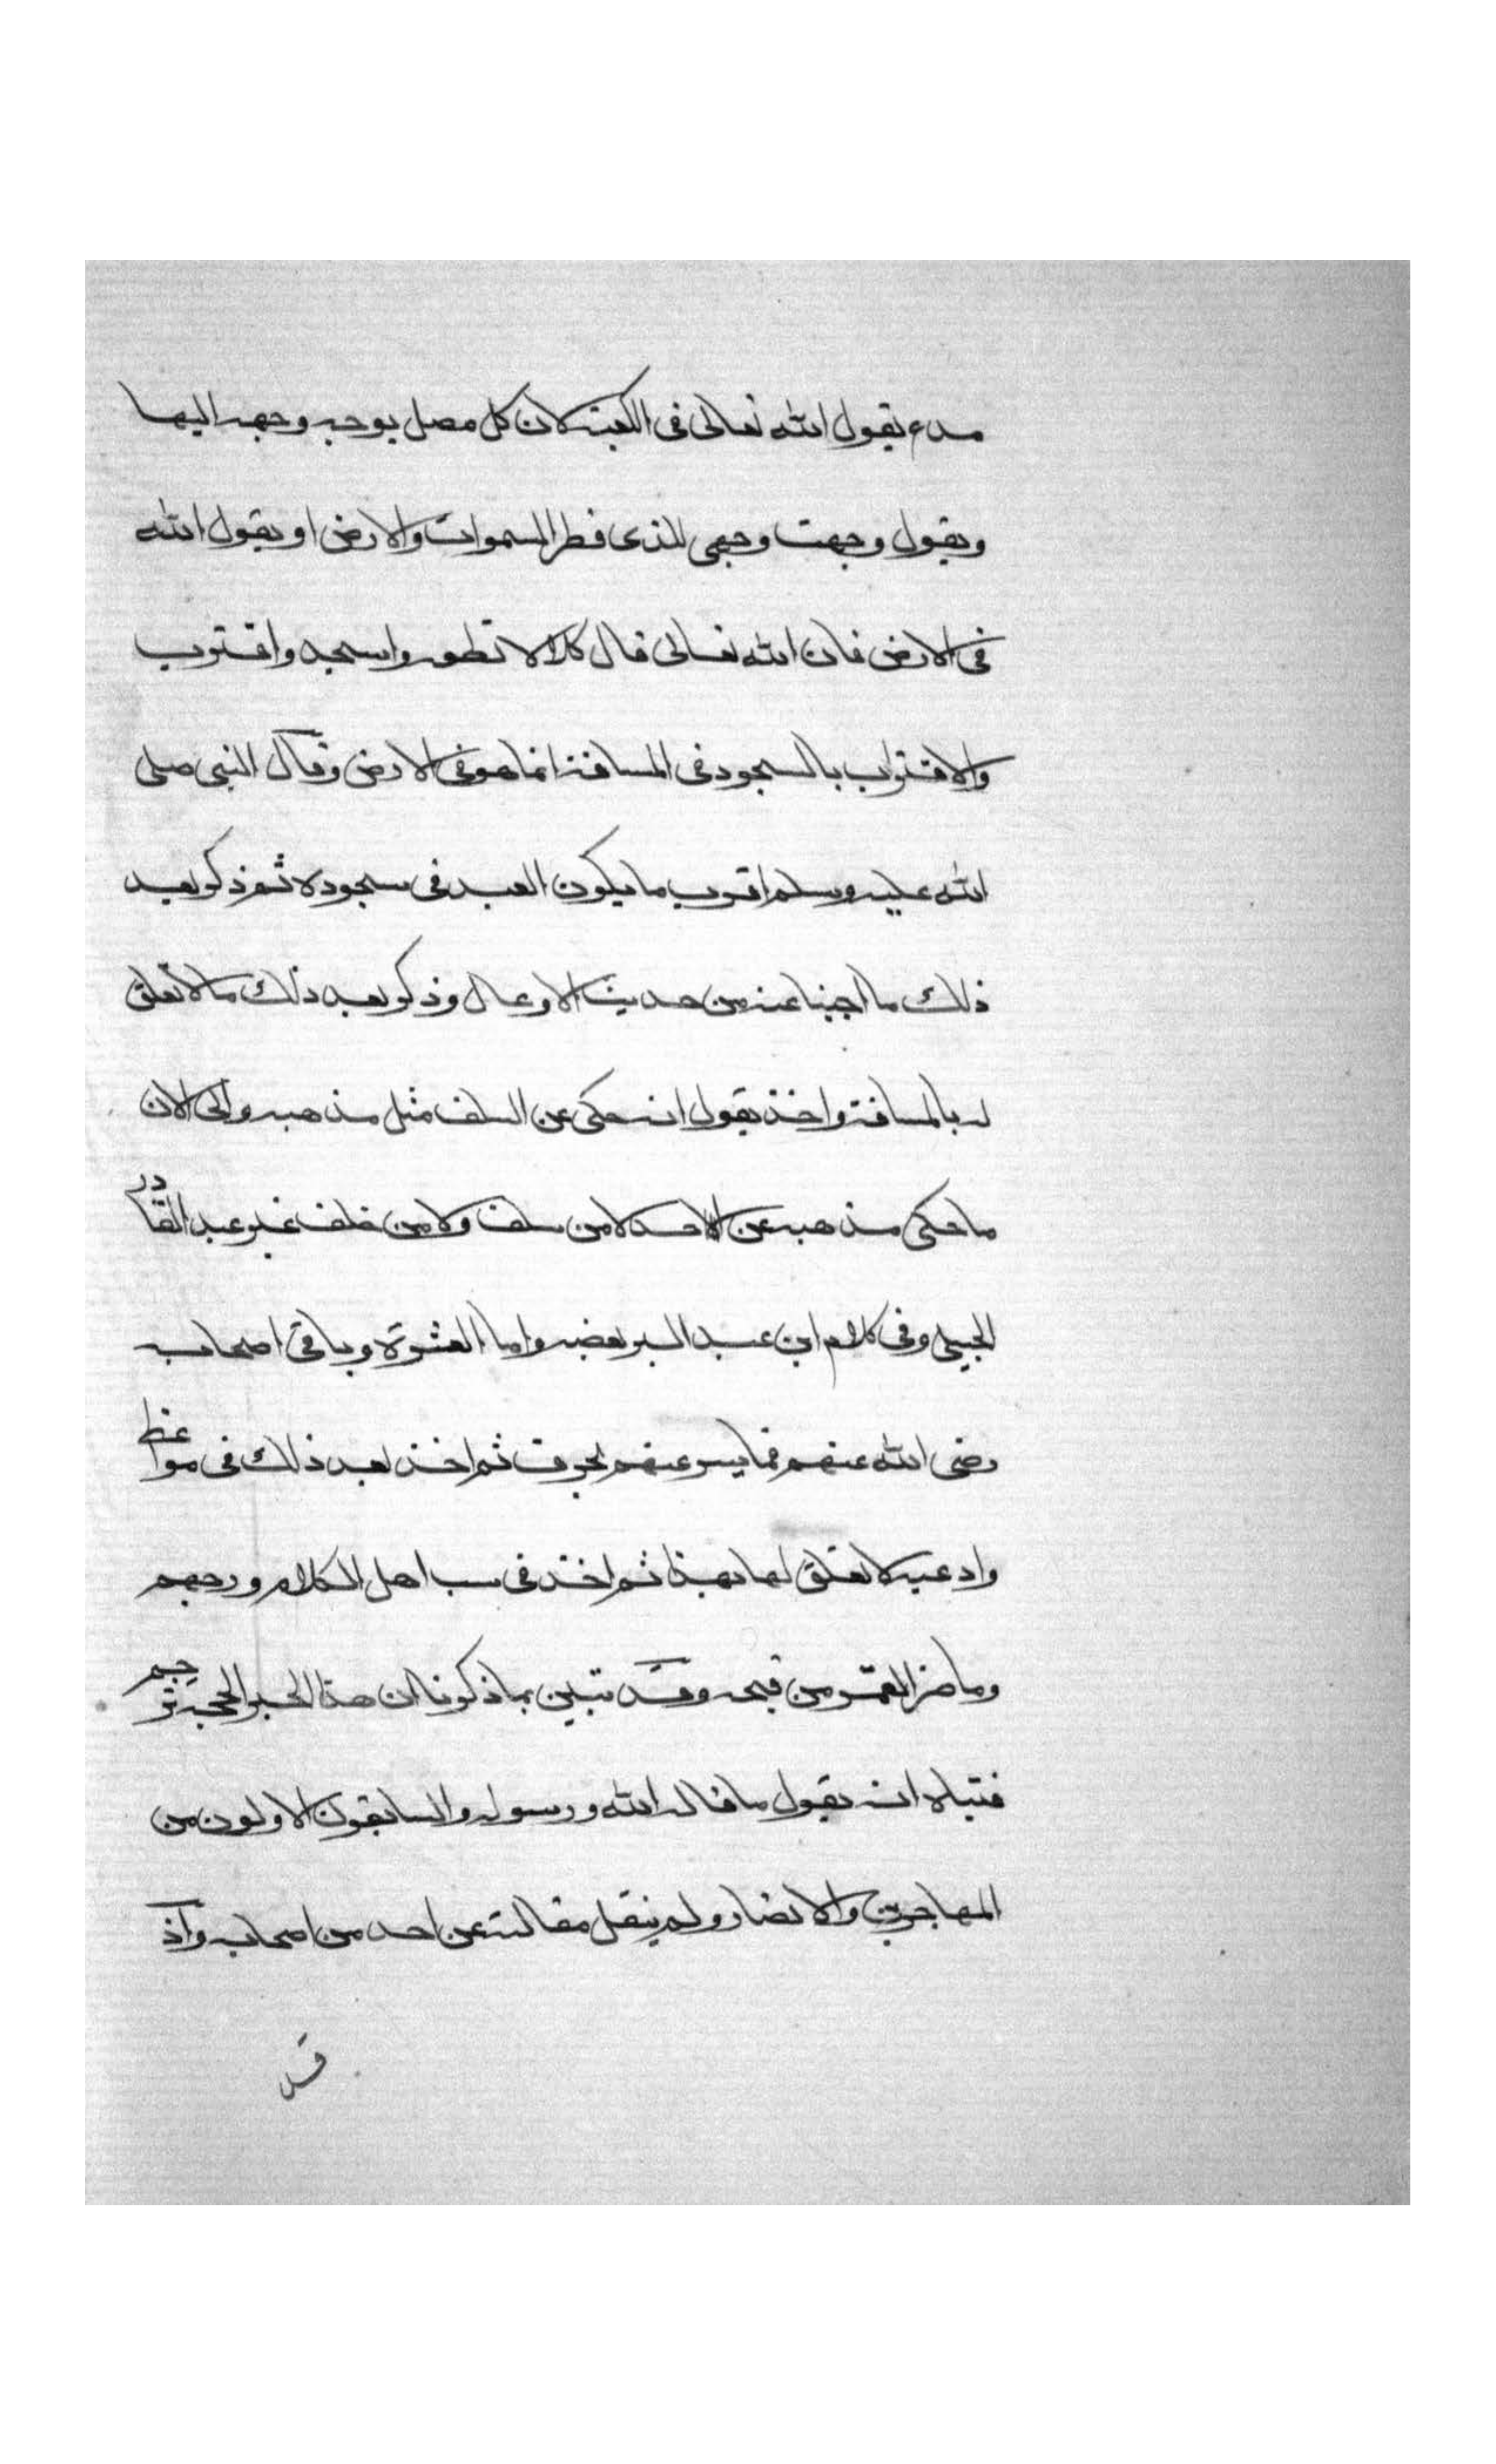 مدع يقول الله تعالى فى الكعبة لان كل مصل يوجه وجهه اليها
ويقول وجهت وجهى للذى فطر السموات والارض او يقول الله
فى الارض فان الله تعالى قال كلا لا تطعه واسجد واقترب
والاقتراب بالسجود فى المسافة انما هو فى الارض وقال النبى صلى
الله عليه وسلم اقرب ما يكون العبد فى سجوده ثم ذكر بعد
ذلك ما اجبنا عنه من حديث الاوعال وذكر بعد ذلك ما لا تعلق
له بالمسافة واخذ يقول انه حكى عن السلف مثل مذهبه والى الان
ما حكى مذهبه عن احد لا من سلف ولا من خلف غير عبد القادر
الجيلى وفى كلام ابن عبد البر بعضه واما العشرة وباقى اصحابه
رضى الله عنهم فما يسر عنهم بحرف ثم اخذ بعد ذلك فى مواعظ
وادعية لا تعلق لها بهذا ثم اخذ فى سب اهل الكلام ورجمهم
وما ضر القمر من قبحه وقد تبين بما ذكرنا ان هذا الحبر الحجة ترجم
فتياه انه يقول ما قاله الله ورسوله والسابقون الاولون من
المهاجرين والانصار ولم ينقل مقالته عن احد من اصحابه واذ
قد